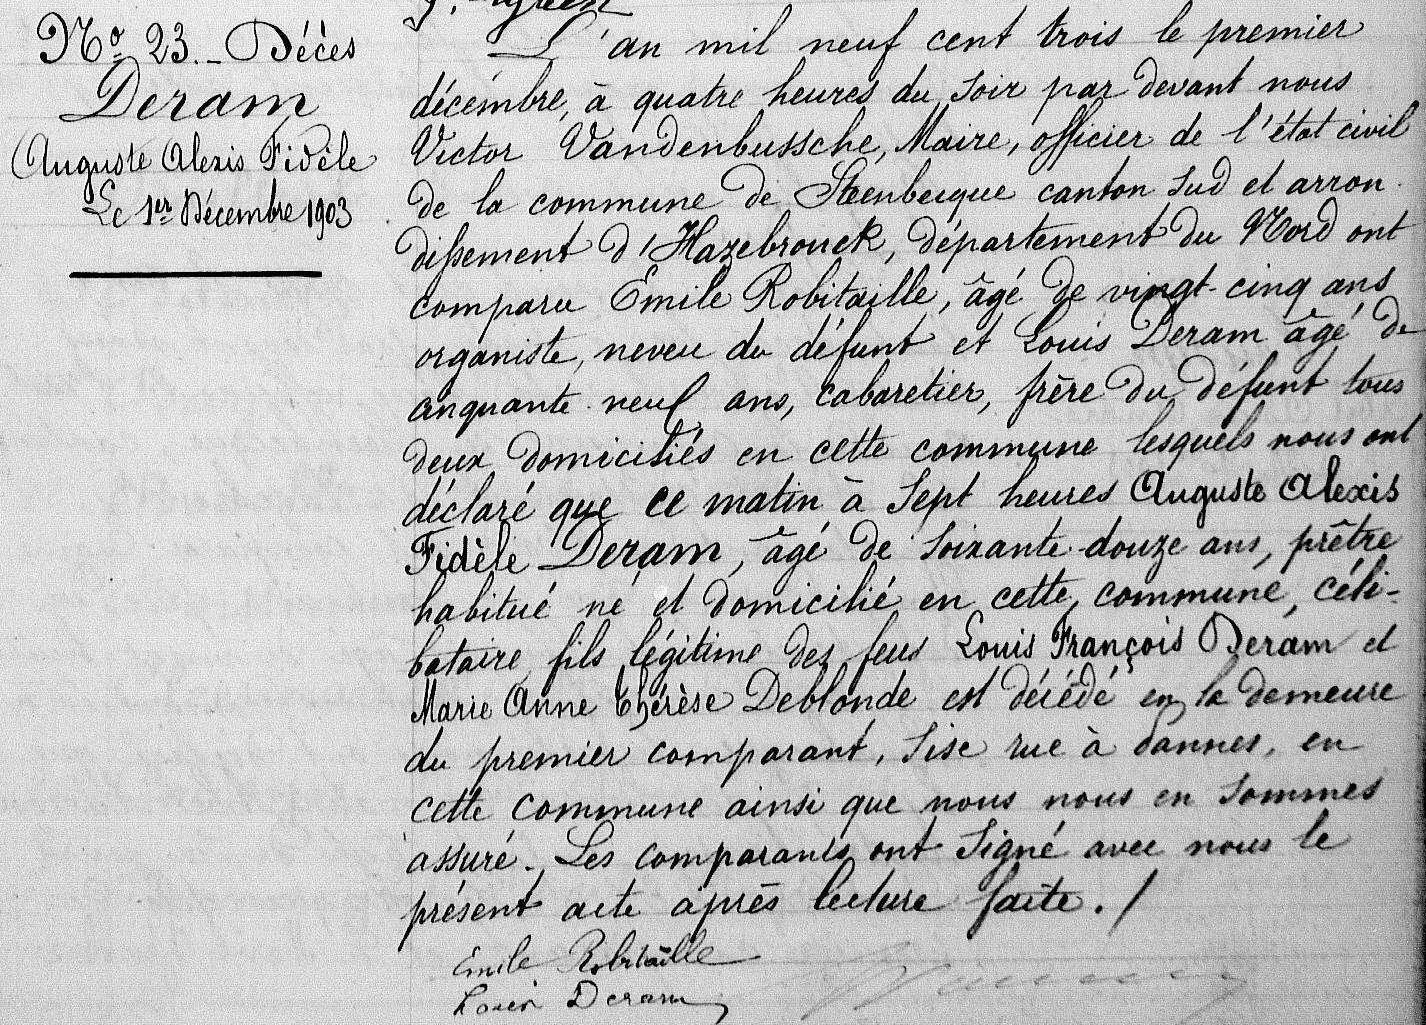 No 23. _ Décès
Deram
(Auguste Alexis Fidèle
Le 1er Décembre 1903
L'an mil neuf cent trois le premier
décembre, à quatre heures du soir par devant nous
Victor Vandenbussche, Maire, officier de l'état civil
de la commune de Steenbecque canton sud et arron
dissement d'Hazebrouck, département du Nord ont
comparu Emile Robitaille, âgé de vingt-cinq ans
organiste, neveu du défunt et Louis Deram âgé de
cinquante neuf ans, cabaretier, frère du défunt tous
deux domiciliés en cette commune lesquels nous ont
déclaré que ce matin à sept heures Auguste Alexis
Fidèle Deram, âgé de soixante-douze ans, prêtre
habitué né et domicilié en cette commune, céli-
bataire, fils légitime des feus Louis François Deram et
Marie Anne Thérèse Deblonde est décédé en la demeure
du premier comparant, sise rue à vannes, en
cette commune ainsi que nous nous en sommes
assuré. Les comparants ont signé avec nous le
présent acte après lecture faite. /
Emile Robitaille
Louis Deram